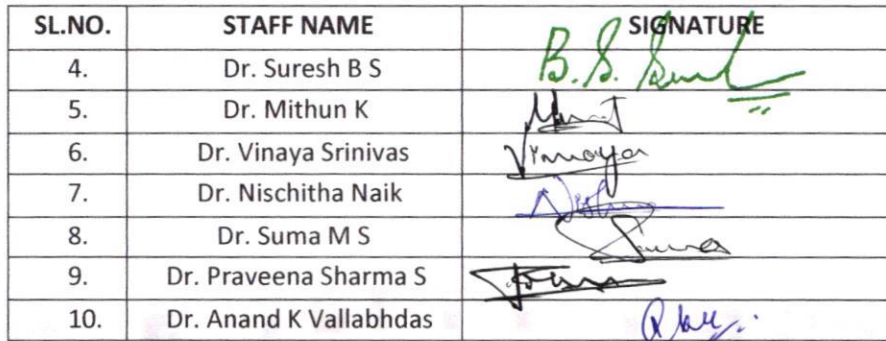 SL.NO. STAFF NAME SIGNATURE
4. Dr. Suresh B S B.S.
5. Dr. Mithun K
6. Dr. Vinaya Srinivas Vinaya
7. Dr. Nischitha Naik
8. Dr. Suma M S Suma
9. Dr. Praveena Sharma S
10. Dr. Anand K Vallabhdas